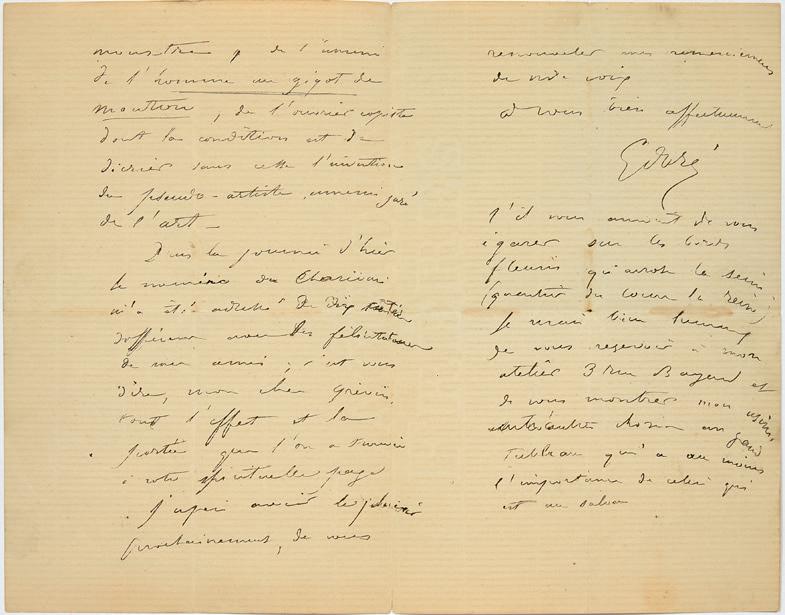 monstre, de l'ennemi
de l'homme au gigot de
mouton, de l'ouvrier copiste
dont la condition est de
décrier sans cesse l'invention
du pseudo-artiste, ennemi juré
de l'art —
Dans la journée d'hier
le numéro du Charivari
m'a été adressé de dix
différents avec les félicitations
de mes amis ; c'est vous
dire, mon cher Grévin,
tout l'effet et la
portée que l'on a trouvé
à votre spirituelle page
J'espère avoir le plaisir
prochainement, de vous
renouveler mes remerciements
de vive voix
à vous bien affectueusement
S'il vous arrivait de vous
égarer sur les bords
fleuris qu'arrose la Seine
(quartier du Cours la Reine)
je serais bien heureux
de vous recevoir à mon
atelier 3 rue Bayard et
de vous montrer mon
entre autres choses un grand
Tableau qui a au moins
l'importance de celui qui
est au salon